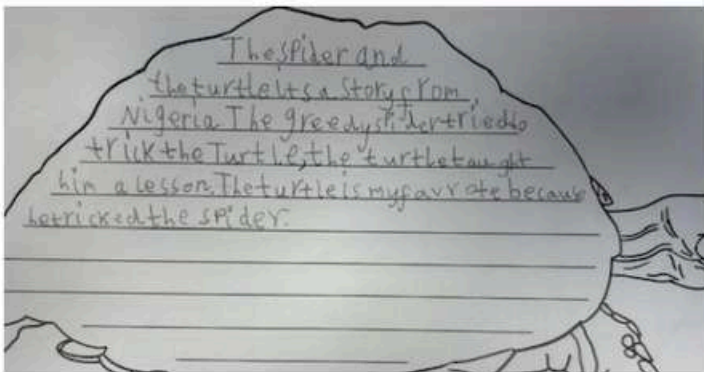 The spider and
the turtle its a story from
Nigeria The greedy spider tried to
trick the Turtle, the turtle taught
him a lesson. The turtle is my favrote because
he tricked the spider.